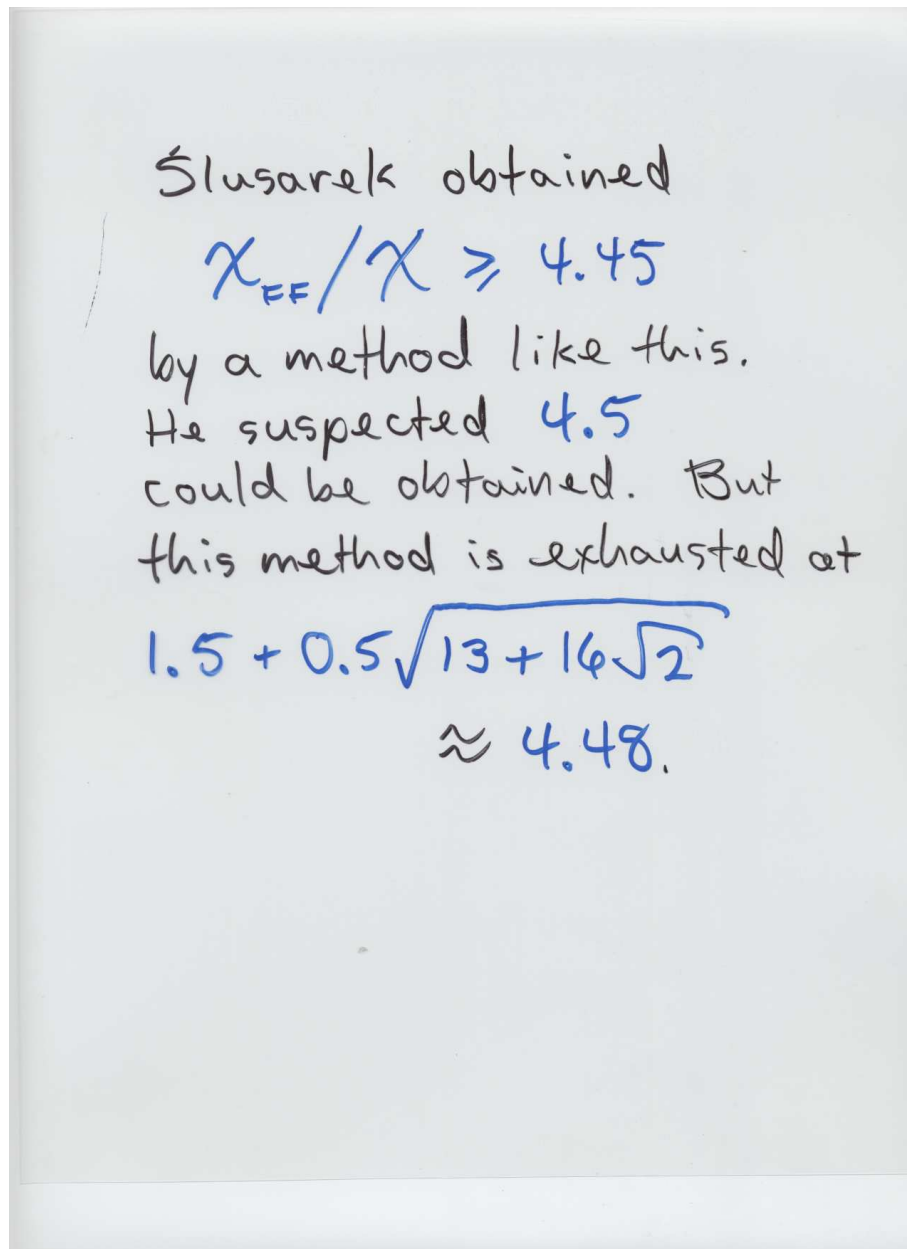 Ślusarek obtained
χ_FF/χ ⩾ 4.45
by a method like this.
He suspected 4.5
could be obtained. But
this method is exhausted at
1.5 + 0.5√(13 + 16√2)
≈ 4.48.